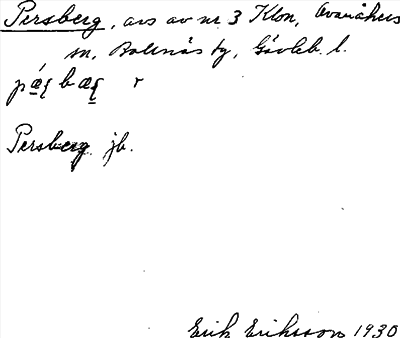 Persberg, avs av nr 3 Klon, Ovanåkers
sn, Bollnäs tg, Gävleb. l.
pǽʂbæʂ r
Persberg jb.
Erik Eriksson 1930